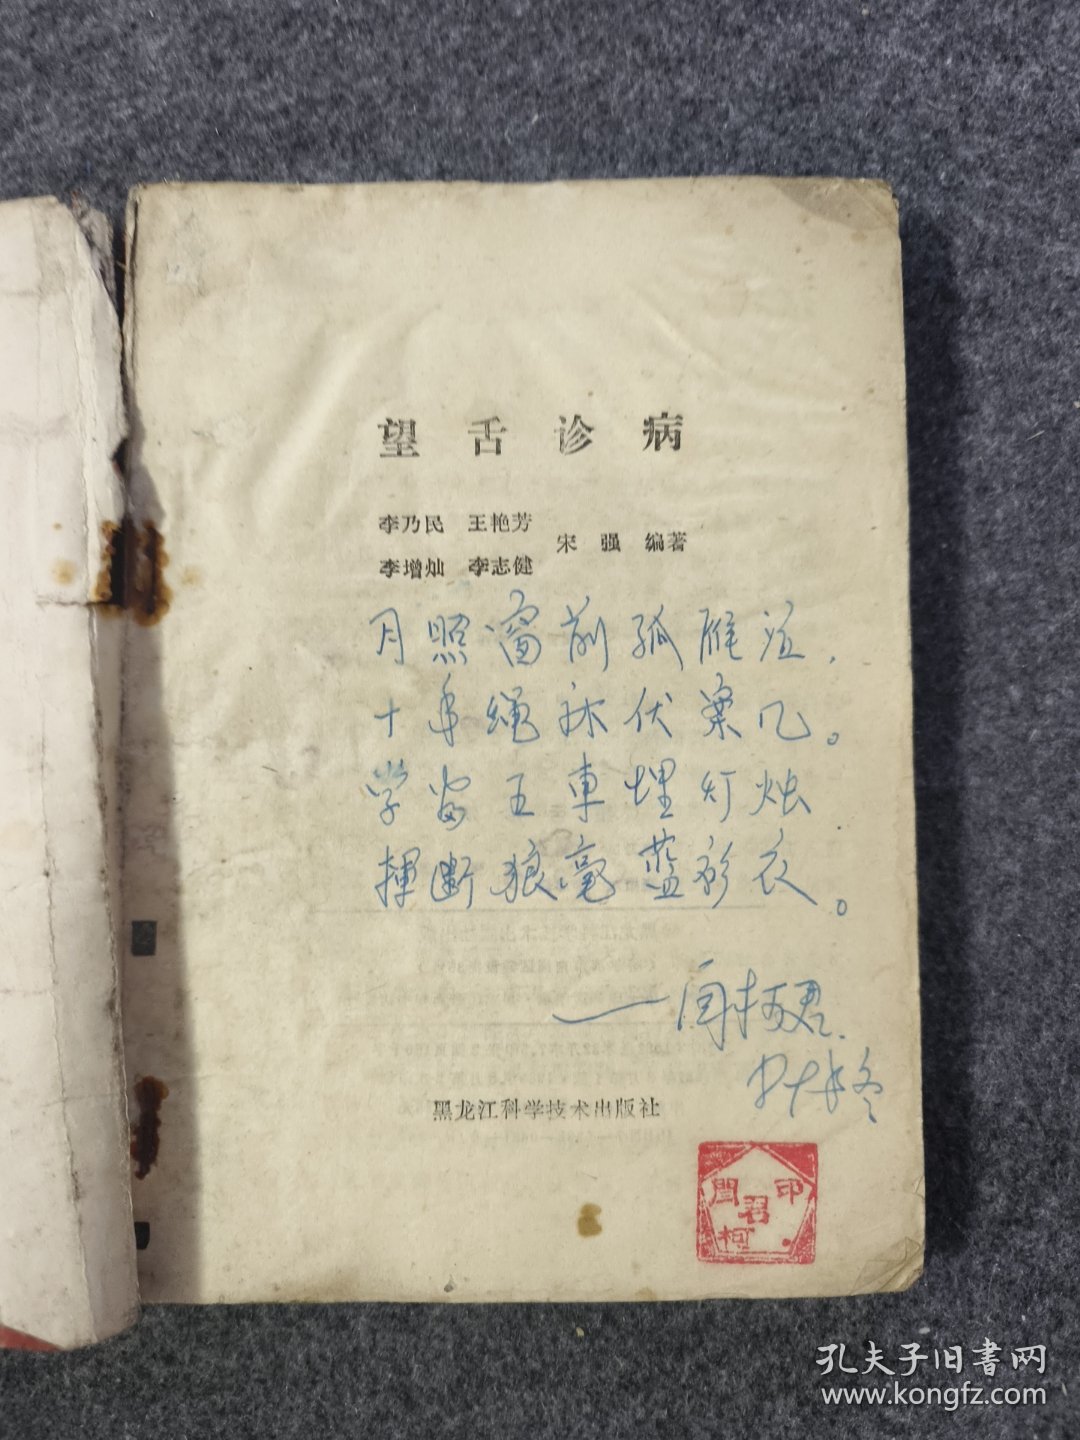 望舌诊病
李乃民 王艳芳
宋强 编著
李增灿 李志健
月照窗前孤雁泣，
十年绳床伏案几。
学富五車埋灯烛
揮断狼毫蓝衫衣。
——闫柯君
黑龙江科学技术出版社
閆君柯印
孔夫子旧書网
www.kongfz.com